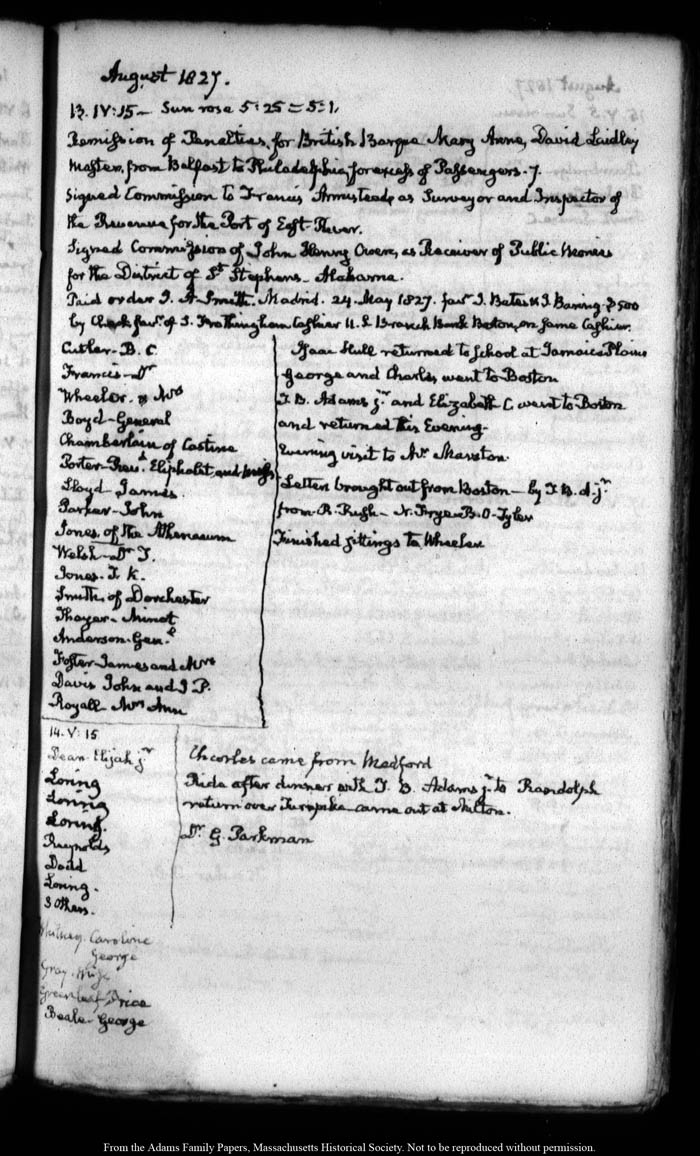 August 1827.
13. IV:15 — Sun rose 5:25 = 5:1.
Remission of Penalties, for British Barque Mary Anne, David Laidley
Master, from Belfast to Philadelphia, for excess of Passengers. 7.
Signed Commission to Francis Armistead, as Surveyor and Inspector of
the Revenue for the Port of East-River.
Signed Commission of John Henry Owen, as Receiver of Public Monies
for the District of St Stephens — Alabama.
Paid order J. A. Smith. Madrid. 24. May 1827. favr. J. Bates & J Baring. $500
by Check favr. of S. Frothingham Cashier U.S Branch Bank Boston, on same Cashier.
Cutler — B. C.
Francis — Dr
Wheeler. & Mrs
Boyd — General
Chamberlain of Castine
Porter — Revd. Eliphalet, and
Lloyd James.
Parker — John
Jones of the Athenaeum
Welsh — Dr T.
Jones. T. K.
Smith, of Dorchester
Thayer — Minot
Anderson. Genl
Foster — James and Mrs
Davis John and I. P.
Royall Mrs Ann
Isaac Hull returned to School at Jamaica Plains
George and Charles went to Boston
T. B. Adams jr and Elizabeth C. went to Boston
and returned this Evening.
Evening visit to Mr Marston.
Letters brought out from Boston — by T. B. A. jr
from R. Rush — N. Frye — B. O. Tyler
Finished sittings to Wheeler
14. V: 15
Dean. Elijah jr
Loring
Loring
Loring.
Reynolds
Dodd
Loring.
3 Others.
Whitney. Caroline
George
Gray.
Greenleaf Price
Beale — George
Charles came from Medford
Ride after dinner with T. B. Adams jr to Randolph
return over Turnpike came out at Milton.
Dr G. Parkman
From the Adams Family Papers, Massachusetts Historical Society. Not to be reproduced without permission.